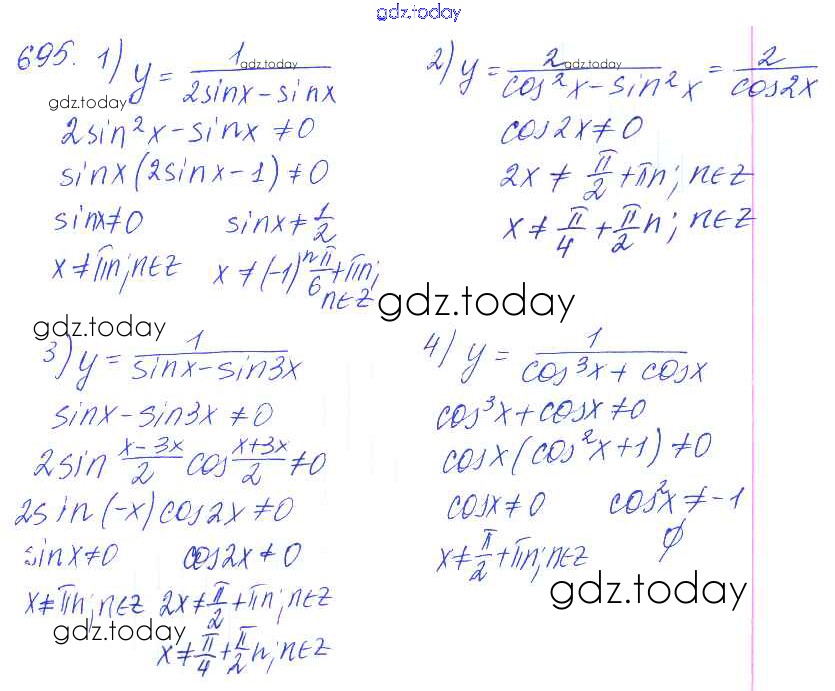 gdz.today
695. 1) y = 1/(2sinx - sinx)
gdz.today
gdz.today
2sin²x - sinx ≠ 0
sinx(2sinx - 1) ≠ 0
sinx ≠ 0 sinx ≠ 1/2
x ≠ πn; n∈Z x ≠ (-1)ⁿ π/6 + πn;
n∈Z
2) y = 2/(cos²x - sin²x) = 2/cos2x
gdz.today
cos2x ≠ 0
2x ≠ π/2 + πn; n∈Z
x ≠ π/4 + π/2 n; n∈Z
gdz.today
gdz.today
3) y = 1/(sinx - sin3x)
sinx - sin3x ≠ 0
2sin (x-3x)/2 cos (x+3x)/2 ≠ 0
2sin(-x)cos2x ≠ 0
sinx ≠ 0 cos2x ≠ 0
x ≠ πn; n∈Z 2x ≠ π/2 + πn; n∈Z
gdz.today
x ≠ π/4 + π/2 n; n∈Z
4) y = 1/(cos³x + cosx)
cos³x + cosx ≠ 0
cosx(cos²x + 1) ≠ 0
cosx ≠ 0 cos²x ≠ -1
x ≠ π/2 + πn; n∈Z ∅
gdz.today